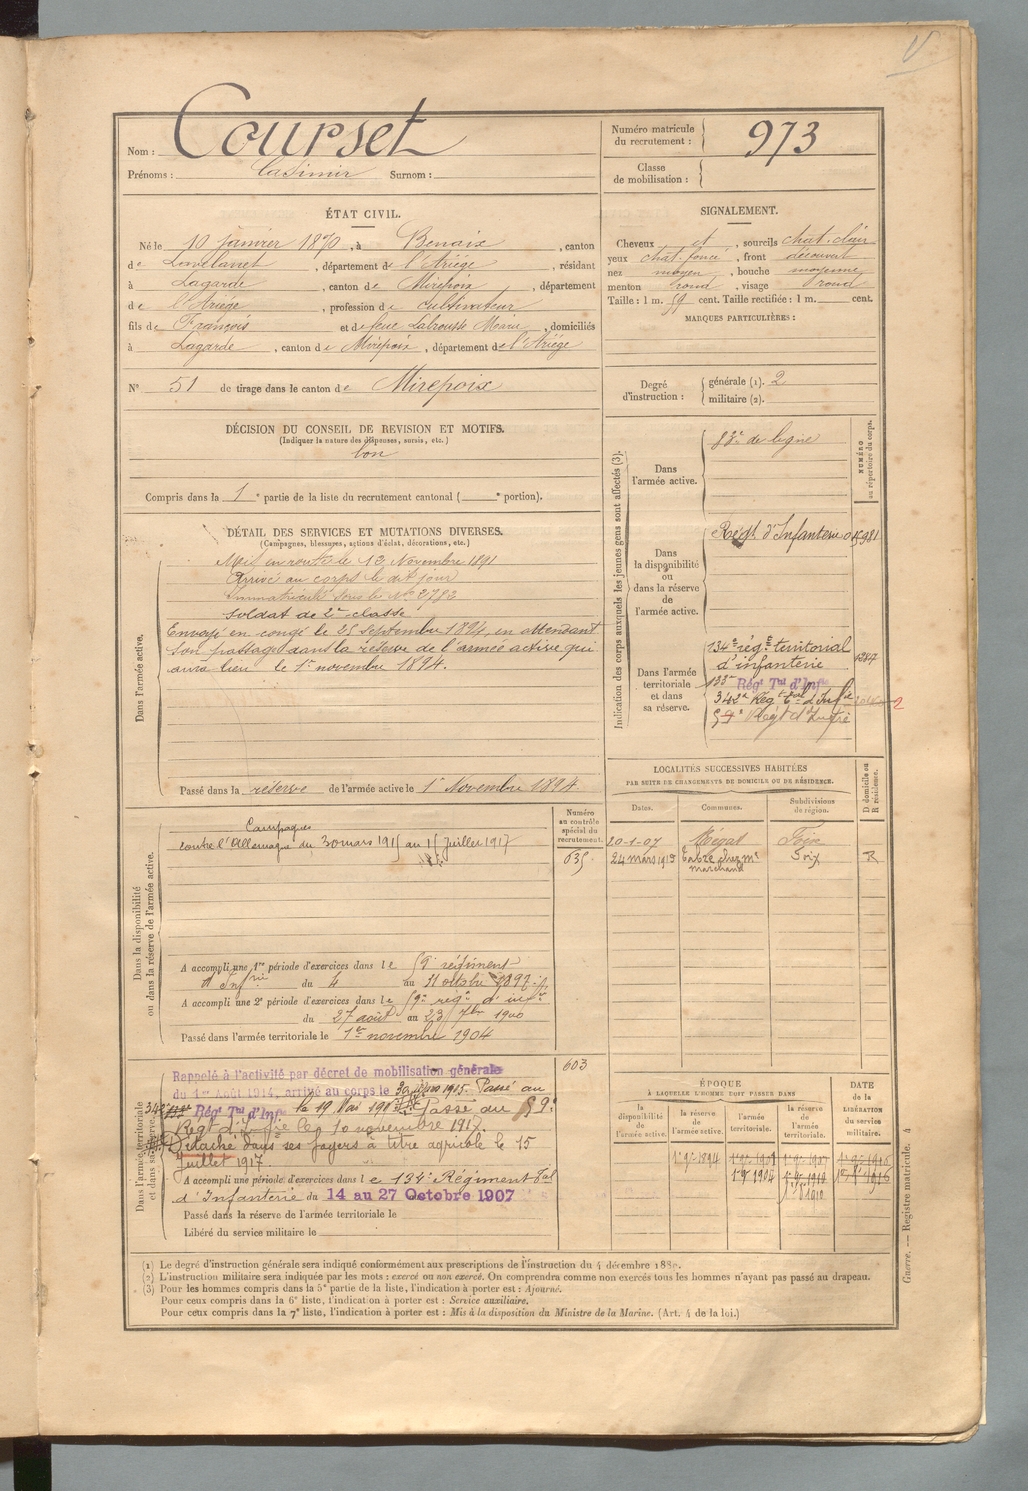 Nom : Courset
Prénoms : Casimir Surnom :
Numéro matricule du recrutement : 973
Classe de mobilisation :
ÉTAT CIVIL.
Né le 10 janvier 1870, à Benaix, canton
de Lavelanet, département de l'Ariége, résidant
à Lagarde, canton de Mirepoix, département
de l'Ariége, profession de cultivateur
fils de François et de feue Labrousse Marie, domiciliés
à Lagarde, canton de Mirepoix, département de l'Ariége
N° 51 de tirage dans le canton de Mirepoix
SIGNALEMENT.
Cheveux et, sourcils chat. clair
yeux chat. foncé, front découvert
nez moyen, bouche moyenne
menton rond, visage rond
Taille : 1 m. 59 cent. Taille rectifiée : 1 m. cent.
MARQUES PARTICULIÈRES :
Degré d'instruction : générale (1). 2
militaire (2).
DÉCISION DU CONSEIL DE REVISION ET MOTIFS.
(Indiquer la nature des dispenses, sursis, etc.)
bon
Compris dans la 1e partie de la liste du recrutement cantonal ( e portion).
DÉTAIL DES SERVICES ET MUTATIONS DIVERSES.
(Campagnes, blessures, actions d'éclat, décorations, etc.)
Dans l'armée active.
Mis en route le 13 Novembre 1891
Arrivé au corps le dit jour
Immatriculé sous le N° 2783
soldat de 2e classe
Envoyé en congé le 25 septembre 1894, en attendant
son passage dans la réserve de l'armée active qui
aura lieu le 1er novembre 1894.
Passé dans la réserve de l'armée active le 1er Novembre 1894.
Indication des corps auxquels les jeunes gens sont affectés (3).
NUMÉRO au répertoire du corps.
Dans l'armée active.
83e de ligne
Dans la disponibilité ou dans la réserve de l'armée active.
Régt. d'Infanterie
Dans l'armée territoriale et dans sa réserve.
134e rég.t territorial
d'infanterie
133e Régt Tal d'Infie
342e Rég
59e Régt d'Infrie
LOCALITÉS SUCCESSIVES HABITÉES
PAR SUITE DE CHANGEMENTS DE DOMICILE OU DE RÉSIDENCE.
Dates. Communes. Subdivisions de région. D domicile ou R résidence.
20-1-07 Foix
24 mars 1913 chez Mr Foix R
marchand
Dans la disponibilité ou dans la réserve de l'armée active.
Numéro au contrôle spécial du recrutement.
635
Campagnes
contre l'Allemagne du 30 mars 1915 au 15 juillet 1917
A accompli une 1re période d'exercices dans le 59e régiment
d'Infrie du 4 au 31 octobre 1897
A accompli une 2e période d'exercices dans le 59e régt d'infie
du 27 août au 23 7bre 1900
Passé dans l'armée territoriale le 1er novembre 1904
Dans l'armée territoriale et dans sa réserve.
603
Rappelé à l'activité par décret de mobilisation générale
du 1er Août 1914, arrivé au corps le 30 mars 1915. Passé au
342e Régt Tal d'Infie le 19 Mai Passé au 59e
Régt d'Infrie le 10 novembre 1917.
Détaché dans ses foyers à titre agricole le 15
juillet 1917.
A accompli une période d'exercices dans le 134e Régiment Tal
d'Infanterie du 14 au 27 Octobre 1907
Passé dans la réserve de l'armée territoriale le
Libéré du service militaire le
ÉPOQUE
À LAQUELLE L'HOMME DOIT PASSER DANS
la disponibilité de l'armée active. la réserve de l'armée active. l'armée territoriale. la réserve de l'armée territoriale.
DATE de la LIBÉRATION du service militaire.
1er 9e 1894 1er 9e 1904
Guerre. — Registre matricule. 4
(1) Le degré d'instruction générale sera indiqué conformément aux prescriptions de l'instruction du 4 décembre 1889.
(2) L'instruction militaire sera indiquée par les mots : exercé ou non exercé. On comprendra comme non exercés tous les hommes n'ayant pas passé au drapeau.
(3) Pour les hommes compris dans la 5e partie de la liste, l'indication à porter est : Ajourné.
Pour ceux compris dans la 6e liste, l'indication à porter est : Service auxiliaire.
Pour ceux compris dans la 7e liste, l'indication à porter est : Mis à la disposition du Ministre de la Marine. (Art. 4 de la loi.)